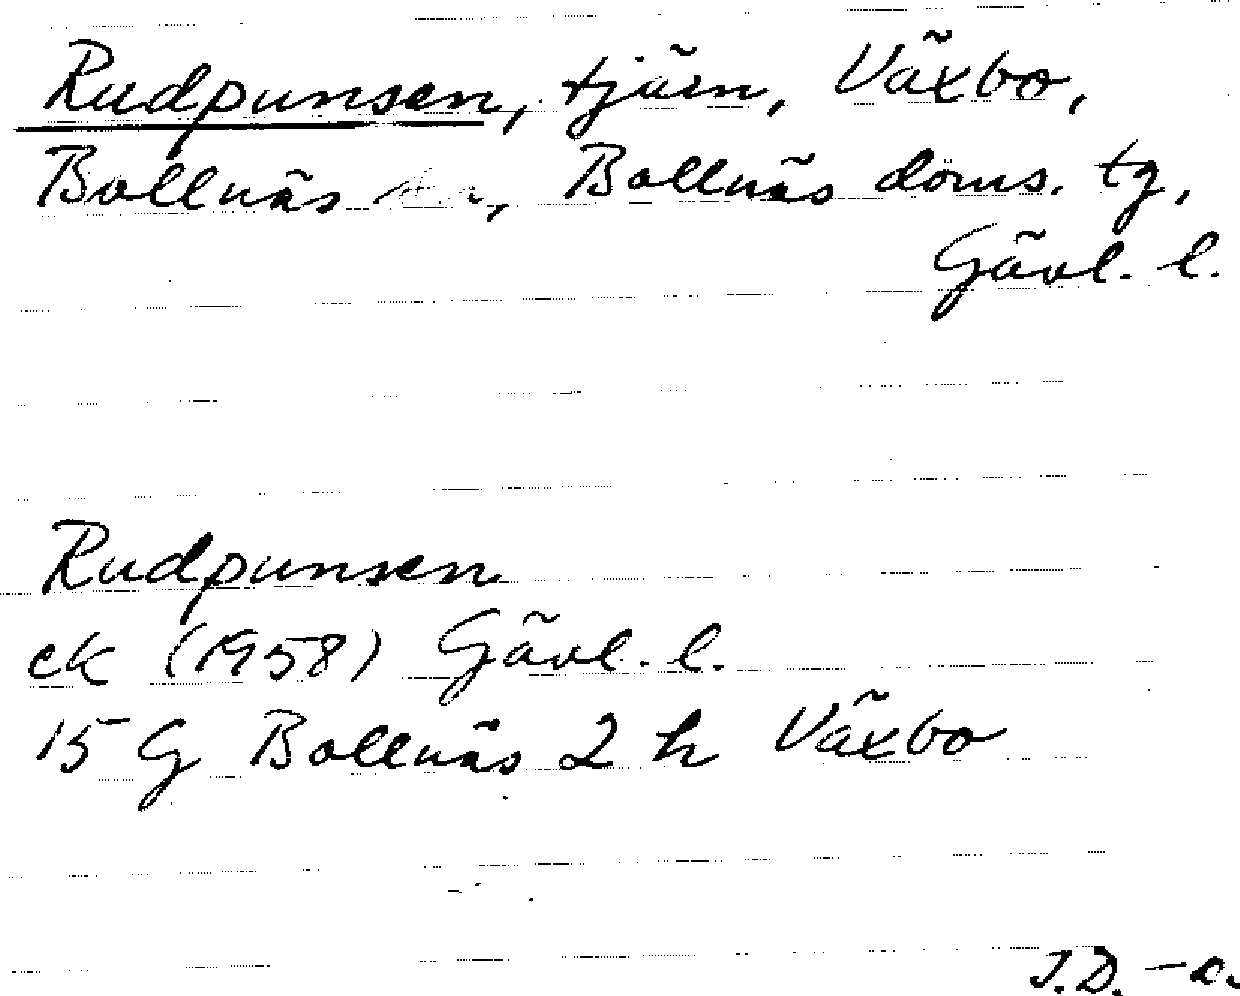 Rudpunsen, tjärn, Växbo,
Bollnäs Bollnäs doms. tg,
Gävl. l.
Rudpunsen
ek (1958) Gävl. l.
15 G Bollnäs 2 h Växbo
J.D.